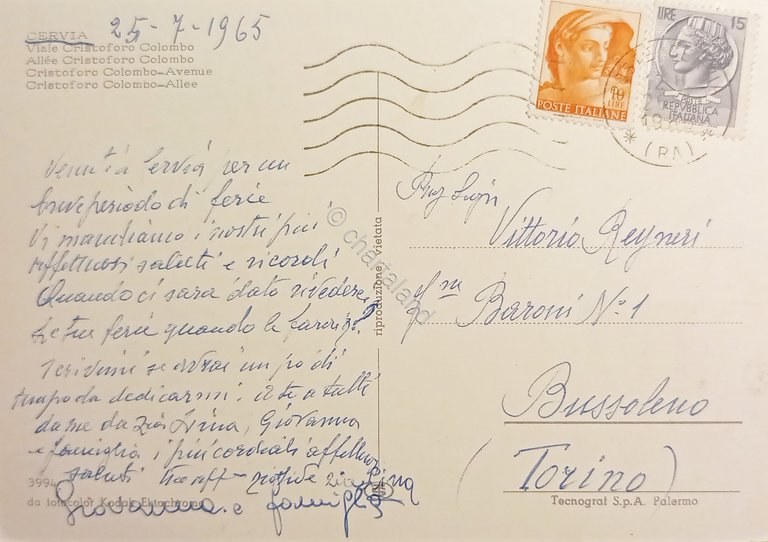 CERVIA 25-7-1965
Viale Cristoforo Colombo
Allée Cristoforo Colombo
Cristoforo Colombo-Avenue
Cristoforo Colombo-Allee
LIRE 15
10 LIRE
POSTE ITALIANE
POSTE
REPVBBLICA
ITALIANA
(RA)
Cervia per un
breve periodo di ferie
Vi mandiamo i nostri più
affettuosi saluti e ricordi
Quando ci sarà dato rivederci
le tue ferie quando le farai?
Scrivimi se avrai un po di
tempo da dedicarmi. a te a tutti
da me da zia Lina, Giovanna
e famiglia i più cordiali affettuosi
saluti zia
Giovanna e famiglia
Vittorio Reyneri
Baroni N° 1
Bussoleno
(Torino)
riproduzione vietata
© chartaland
3994
da fotocolor Kodak Ektachrome
Tecnograf S.p.A. Palermo